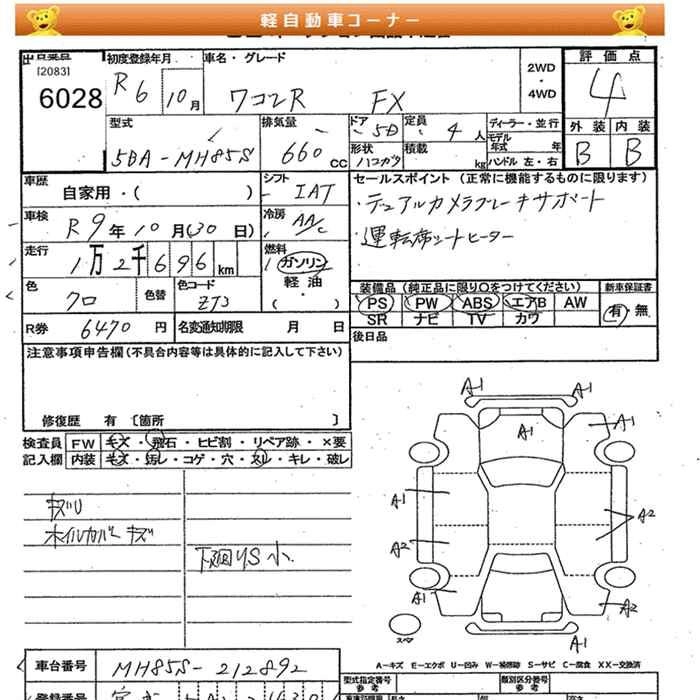 軽自動車コーナー
[2083]
6028
初度登録年月
R6 10月
車名・グレード
ワゴンR FX
2WD
・
4WD
評価点
4
外装 内装
B B
型式
5BA-MH85S
排気量
660 cc
ドア
5D
定員
4人
形状
ハコガタ
積載
kg
ディーラー・並行
モデル
年式 年
ハンドル 左・右
車歴
自家用・( )
シフト
IAT
セールスポイント (正常に機能するものに限ります)
・デュアルカメラブレーキサポート
・運転席シートヒーター
車検
R9年10月(30日)
冷房
AAC
走行
1万2千696km
燃料
ガソリン
軽油
( ・ )
色
クロ
色替
色コード
ZJ3
装備品 (純正品に限り○をつけてください)
PS PW ABS エアB AW
SR ナビ TV カワ
新車保証書
有・無
R券 6470円
名変通知期限 月 日
後日品
注意事項申告欄(不具合内容等は具体的に記入して下さい)
修復歴 有 [箇所 ]
検査員 FW キズ・飛石・ヒビ割・リペア跡・×要
記入欄 内装 キズ・汚レ・コゲ・穴・スレ・キレ・破レ
ホイルカバーキズ
下廻りS小
A1
A1
A1
A1
A1
A2
A2
A1
A2
A1
スペア
A-キズ E-エクボ U-凹み W-補修跡 S-サビ C-腐食 XX-交換済
車台番号
MH85S-212892
型式指定番号
参考
類別区分番号
参考